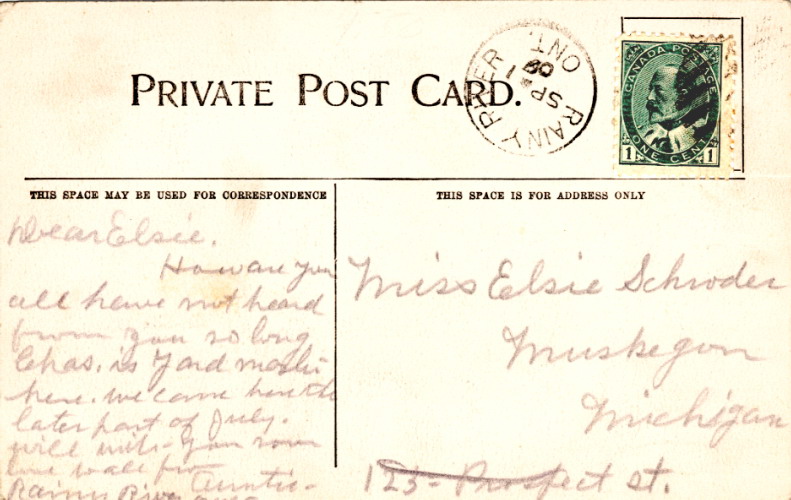 PRIVATE POST CARD.
RAINY RIVER ONT.
SP 1
09
CANADA POSTAGE
1 ONE CENT 1
THIS SPACE MAY BE USED FOR CORRESPONDENCE
THIS SPACE IS FOR ADDRESS ONLY
Dear Elsie.
How are you
all have not heard
from you so long
Chas. is Yard
here. we came here the
later part of July.
will you soon
from Auntie
Rainy River
Miss Elsie Schroder
Muskegon
Michigan
123 - Prospect st.